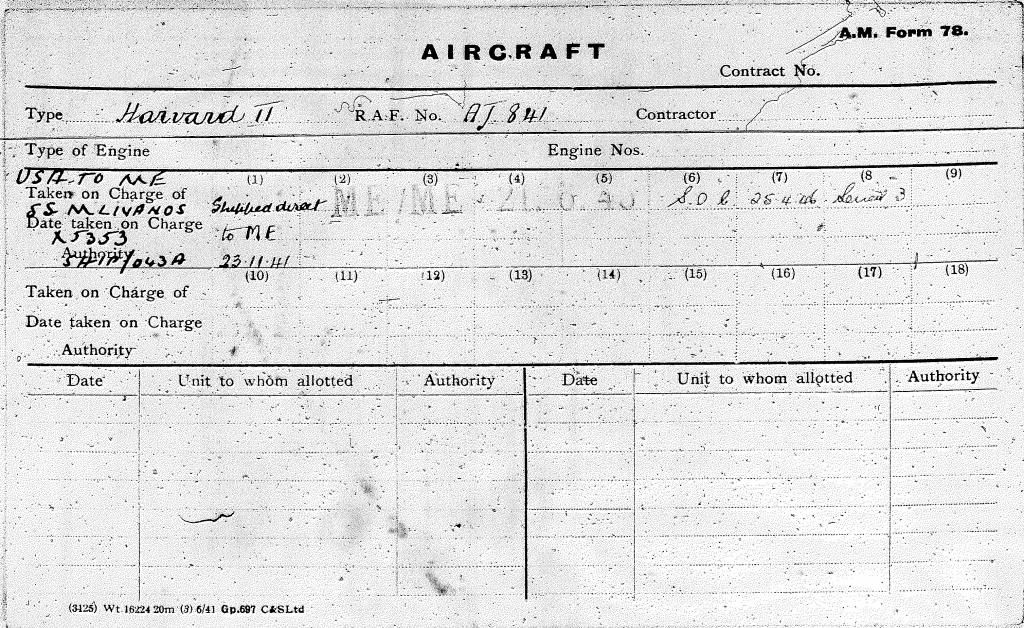 A.M. Form 78.
AIRCRAFT
Contract No.
Type Harvard II R.A.F. No. AJ 841 Contractor
Type of Engine Engine Nos.
USA TO ME (1) (2) (3) (4) (5) (6) (7) (8 (9)
Taken on Charge of
SS M LIVANOS Shipped direct ME/ME 21. 6. 43 S.O.C 25.4.46 3
Date taken on Charge
X5353 to ME
Authority
SHIP/043A 23.11.41
(10) (11) (12) (13) (14) (15) (16) (17) (18)
Taken on Charge of
Date taken on Charge
Authority
Date Unit to whom allotted Authority Date Unit to whom allotted Authority
(3125) Wt. 16224 20m (3) 6/41 Gp.697 C&SLtd